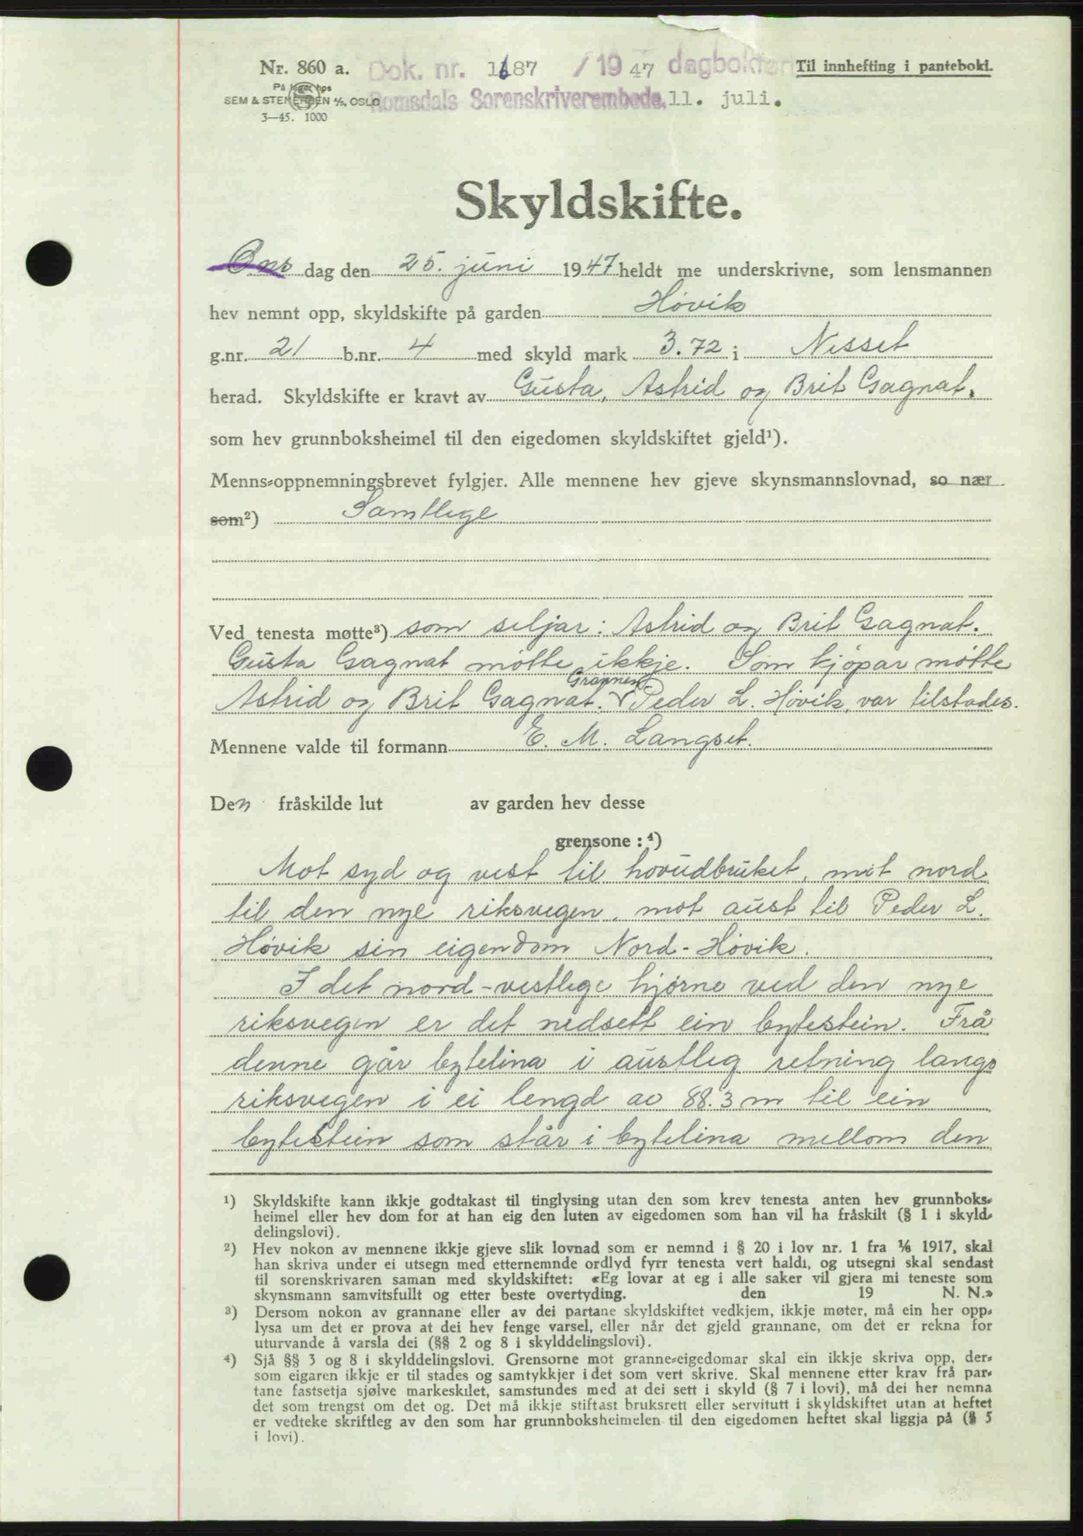 Nr. 860 a. Dok. nr. 1187 /1947 dagboken Til innhefting i pantebok.
På lager hos
SEM & STENERSEN A/S, OSLO Romsdals Sorenskriverembede, 11. juli.
3—45. 1000
Skyldskifte.
Ons dag den 25. juni 1947 heldt me underskrivne, som lensmannen
hev nemnt opp, skyldskifte på garden Høvik
g.nr. 21 b.nr. 4 med skyld mark 3.72 i Nesset
herad. Skyldskifte er kravt av Gusta, Astrid og Brit Gagnat.
som hev grunnboksheimel til den eigedomen skyldskiftet gjeld¹).
Menns-oppnemningsbrevet fylgjer. Alle mennene hev gjeve skynsmannslovnad, so nær
som²) Samtlege
Ved tenesta møtte³) som seljar: Astrid og Brit Gagnat.
Gusta Gagnat møtte ikkje. Som kjøpar møtte
Grannen
Astrid og Brit Gagnat. V Peder L. Høvik, var tilstades.
Mennene valde til formann E. M. Langset.
Den fråskilde lut av garden hev desse
grensone : ⁴)
Mot syd og vest til hovudbruket, mot nord
til den nye riksvegen, mot aust til Peder L.
Høvik sin eigendom Nord-Høvik.
I det nord-vestlege hjørne ved den nye
riksvegen er det nedsett ein bytestein. Frå
denne går bytelina i austleg retning langs
riksvegen i ei lengd av 88.3 m til ein
bytestein som står i bytelina mellom den
¹) Skyldskifte kann ikkje godtakast til tinglysing utan den som krev tenesta anten hev grunnboks-
heimel eller hev dom for at han eig den luten av eigedomen som han vil ha fråskilt (§ 1 i skyld-
delingslovi).
²) Hev nokon av mennene ikkje gjeve slik lovnad som er nemnd i § 20 i lov nr. 1 fra ¹/₆ 1917, skal
han skriva under ei utsegn med etternemnde ordlyd fyrr tenesta vert haldi, og utsegni skal sendast
til sorenskrivaren saman med skyldskiftet: «Eg lovar at eg i alle saker vil gjera mi teneste som
skynsmann samvitsfullt og etter beste overtyding. den 19 N. N.»
³) Dersom nokon av grannane eller av dei partane skyldskiftet vedkjem, ikkje møter, må ein her opp-
lysa um det er prova at dei hev fenge varsel, eller når det gjeld grannane, om det er rekna for
uturvande å varsla dei (§§ 2 og 8 i skylddelingslovi).
⁴) Sjå §§ 3 og 8 i skylddelingslovi. Grensorne mot granne-eigedomar skal ein ikkje skriva opp, der-
som eigaren ikkje er til stades og samtykkjer i det som vert skrive. Skal mennene etter krav frå par-
tane fastsetja sjølve markeskilet, samstundes med at dei sett i skyld (§ 7 i lovi), må dei her nemna
det som trengst om det og. Det må ikkje stiftast bruksrett eller servitutt i skyldskiftet utan at heftet
er vedteke skriftleg av den som har grunnboksheimelen til den eigedomen heftet skal liggja på (§ 5
i lovi).